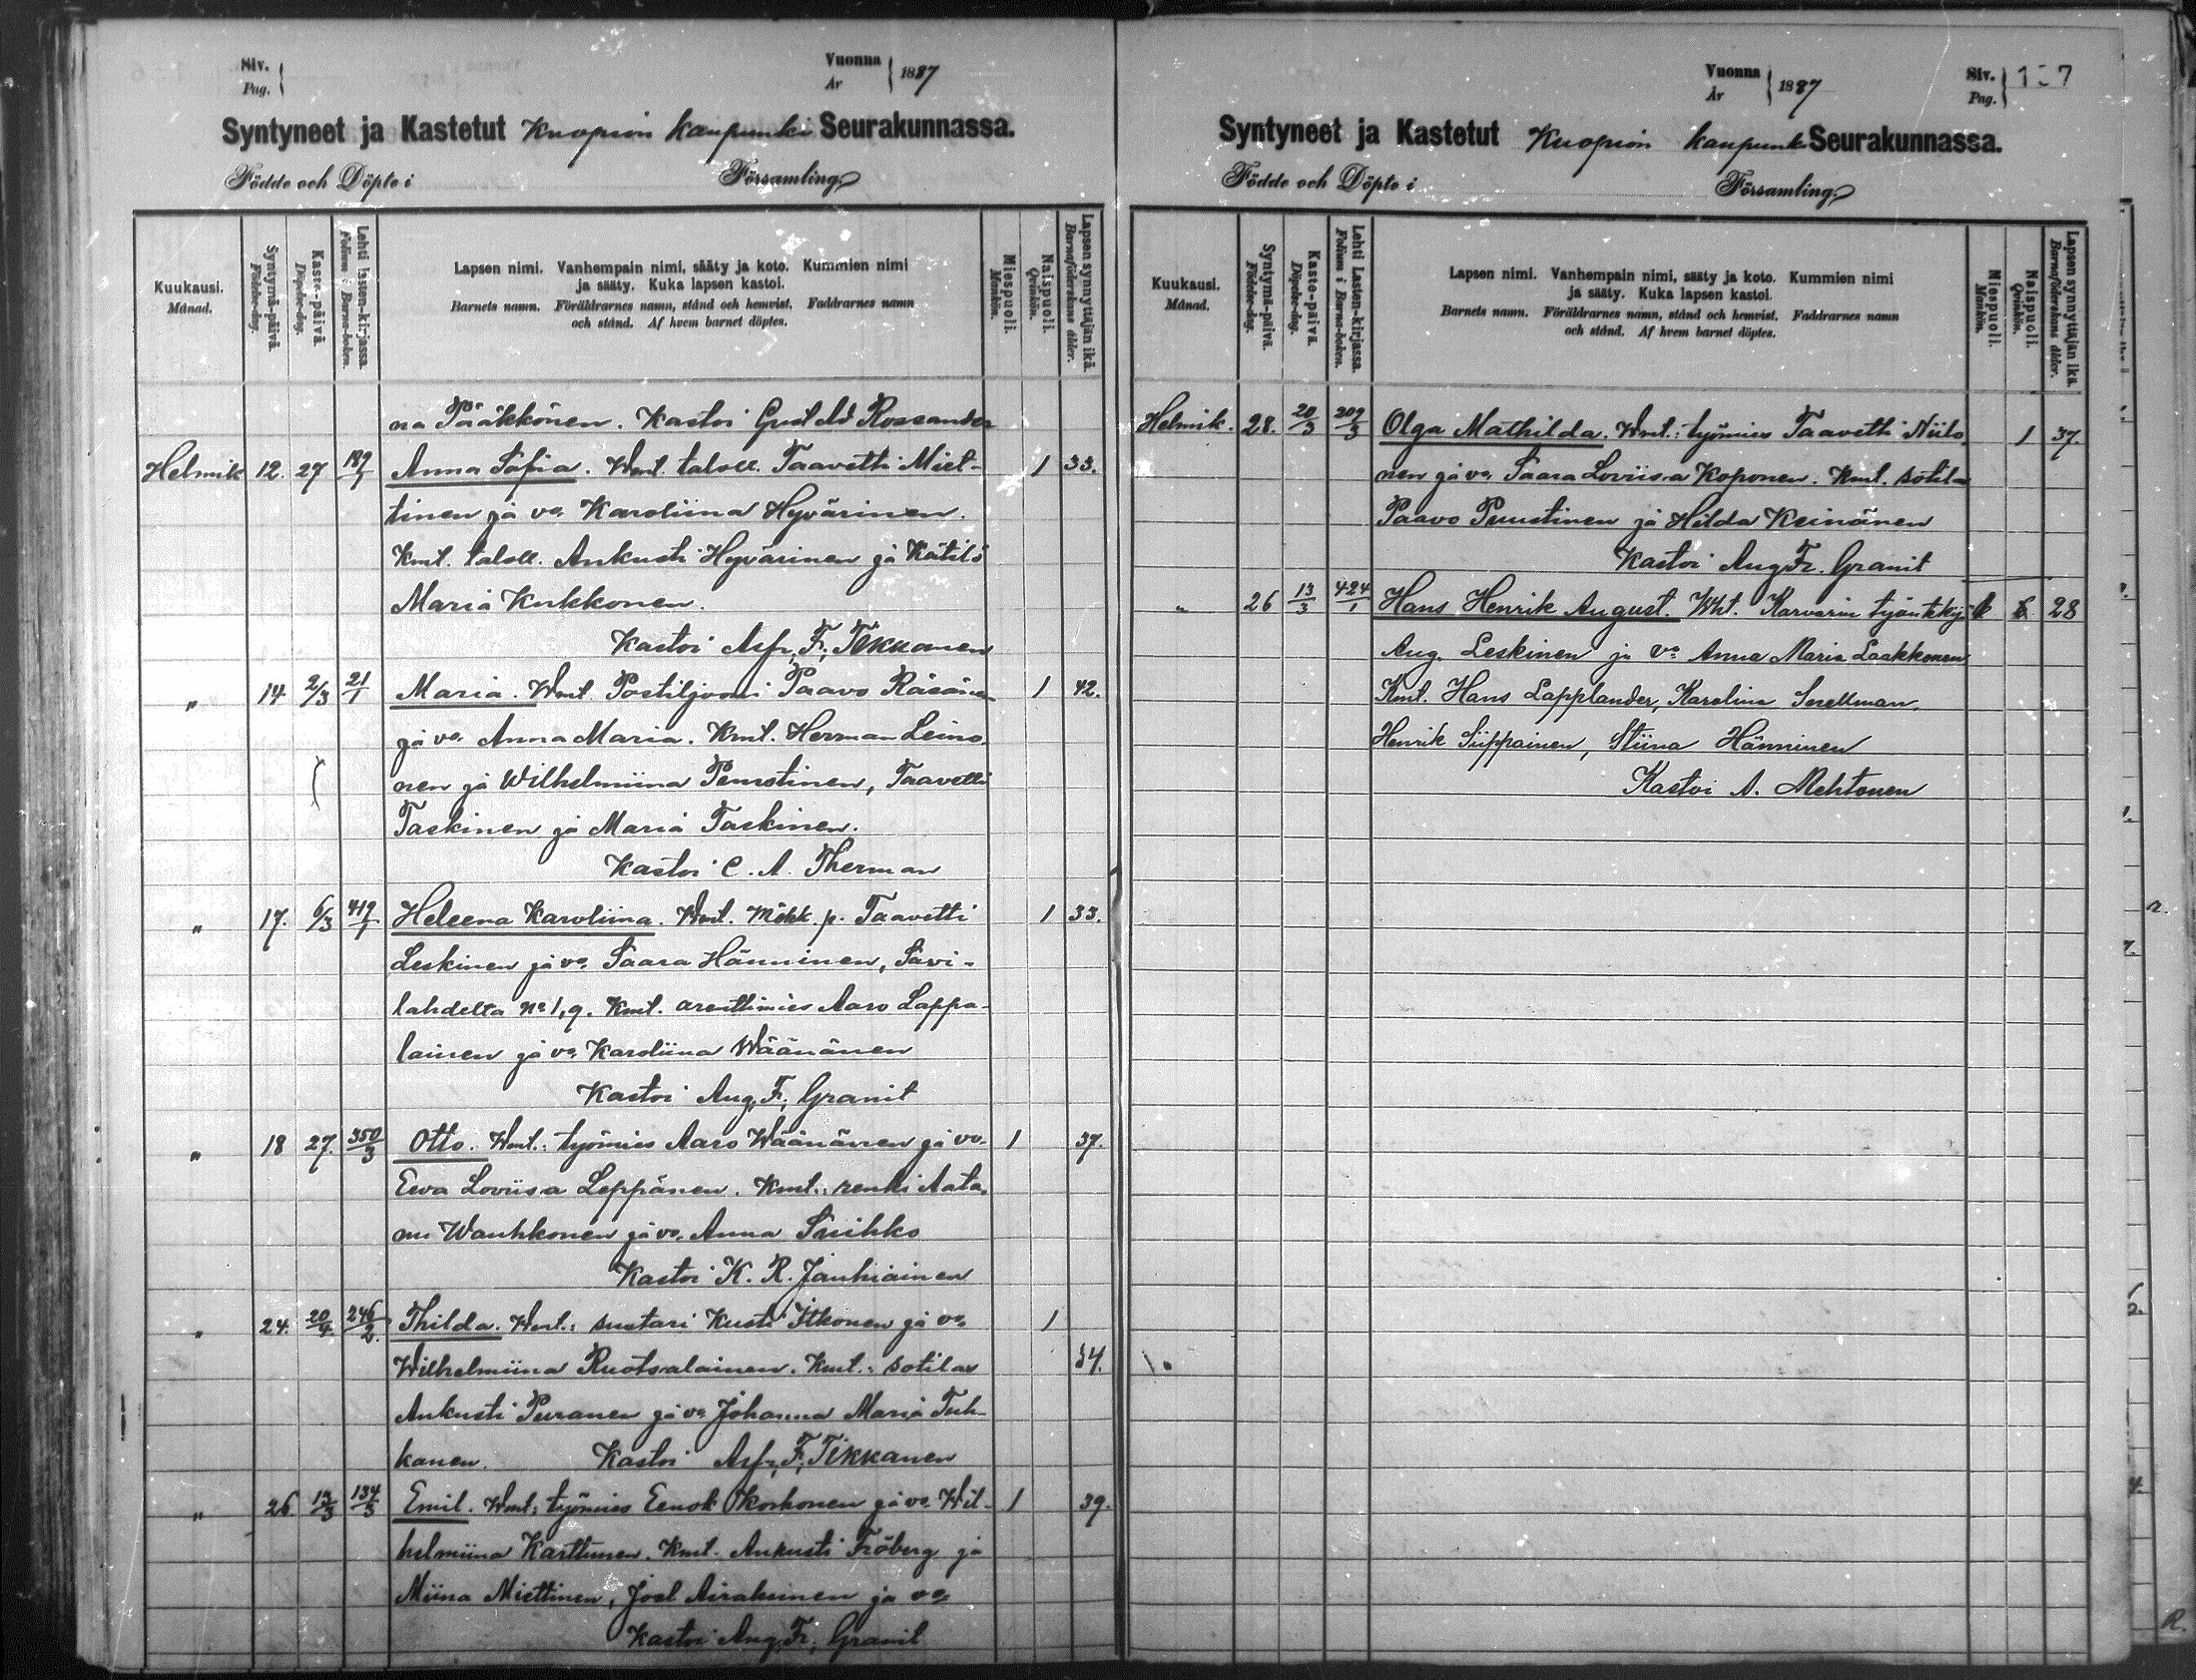 Siv.
Pag.
Vuonna
År
1887
Syntyneet ja Kastetut Kuopion kaupunki Seurakunnassa.
Födde och Döpte i Församling.
Kuukausi.
Månad.
Syntymä-päivä.
Födelse-dag.
Kaste-päivä.
Döpelse-dag.
Lehti Lasten-kirjassa.
Folium i Barna-boken.
Lapsen nimi. Vanhempain nimi, sääty ja koto. Kummien nimi
ja sääty. Kuka lapsen kastoi.
Barnets namn. Föräldrarnes namn, stånd och hemvist. Faddrarnes namn
och stånd. Af hvem barnet döptes.
Miespuoli.
Mankön.
Naispuoli.
Qvinkön.
Lapsen synnyttäjän ikä.
Barnaföderskans ålder.
na Pääkkönen. Kastoi Gust Ad Rossander
Helmik 12. 27 189/1 Anna Sofia. Wmt. taloll. Taavetti Miet- 1 33.
tinen ja vo. Karoliina Hyvärinen.
Kmt. taloll. Aukusti Hyvärinen ja Kätilö
Maria Kukkonen.
Kastoi F. Tikkanen
" 14. 2/3 21/1 Maria. Wmt. Postiljooni Paavo Räsänen 1 42.
ja vo. Anna Maria. Kmt. Herman Leino-
nen ja Wilhelmiina Taavetti
Taskinen ja Maria Taskinen.
Kastoi C. A. Therman
" 17. 6/3 419/1 Heleena Karoliina. Wmt. Mökk. p. Taavetti 1 33.
Leskinen ja vo. Saara Hänninen, Savi-
lahdelta No 1, 9. Kmt. arenttimies Aaro Lappa-
lainen ja vo. Karoliina Wäänänen
Kastoi Aug. F. Granit
" 18 27. 350/3 Otto. Wmt.: työmies Aaro Wäänänen ja vo. 1 37.
Eeva Loviisa Leppänen. Kmt.: renki Aata-
mi Wauhkonen ja vo. Anna Suihko
Kastoi K. R. Jauhiainen
" 24. 20/4 246/2. Thilda. Wmt.: suutari Kusti Itkonen ja vo. 1
Wilhelmiina Ruotsalainen. Kmt.: sotilas 34.
Aukusti Puranen ja vo. Johanna Maria Tuh-
kanen. Kastoi F. Tikkanen
" 26. 13/3 134/3 Emil. Wmt.: työmies Eenok Korhonen ja vo. Wil- 1 39.
helmiina Karttunen. Kmt. Aukusti Fröberg ja
Miina Miettinen, Joel Airaksinen ja vo.
Kastoi Aug. Fr. Granit
Vuonna
År
1887
Siv.
Pag.
Syntyneet ja Kastetut Kuopion kaupunk Seurakunnassa.
Födde och Döpte i Församling.
Kuukausi.
Månad.
Syntymä-päivä.
Födelse-dag.
Kaste-päivä.
Döpelse-dag.
Lehti Lasten-kirjassa.
Folium i Barna-boken.
Lapsen nimi. Vanhempain nimi, sääty ja koto. Kummien nimi
ja sääty. Kuka lapsen kastoi.
Barnets namn. Föräldrarnes namn, stånd och hemvist. Faddrarnes namn
och stånd. Af hvem barnet döptes.
Miespuoli.
Mankön.
Naispuoli.
Qvinkön.
Lapsen synnyttäjän ikä.
Barnaföderskans ålder.
Helmik. 28. 20/3 209/3 Olga Mathilda. Wmt.: työmies Taavetti Niilo- 1 37.
nen ja vo. Saara Loviisa Koponen. Kmt. sotilas
Paavo Puustinen ja Hilda Keinänen
Kastoi Aug. Fr. Granit
" 26 13/3 424/1 Hans Henrik August. Wht. Karvarin työntekijä 28
Aug. Leskinen ja vo Anna Maria Laakkonen
Kmt. Hans Lapplander, Karolina Snellman,
Henrik Siippainen, Stiina Hänninen
Kastoi A. Mehtonen